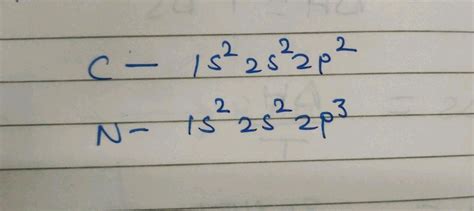 C — 1s² 2s² 2p²
N - 1s² 2s² 2p³